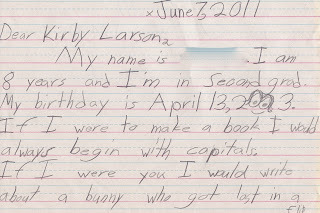 x June 7, 2011
Dear Kirby Larson,
My name is . I am
8 years and I'm in Second grad.
My birthday is April 13, 2003.
If I were to make a book I would
always begin with capitals.
If I were you I would write
about a bunny who got lost in a